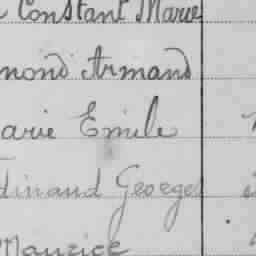 Constant Marie
mond Armand
arie Emile
dinand Georges
Maurice